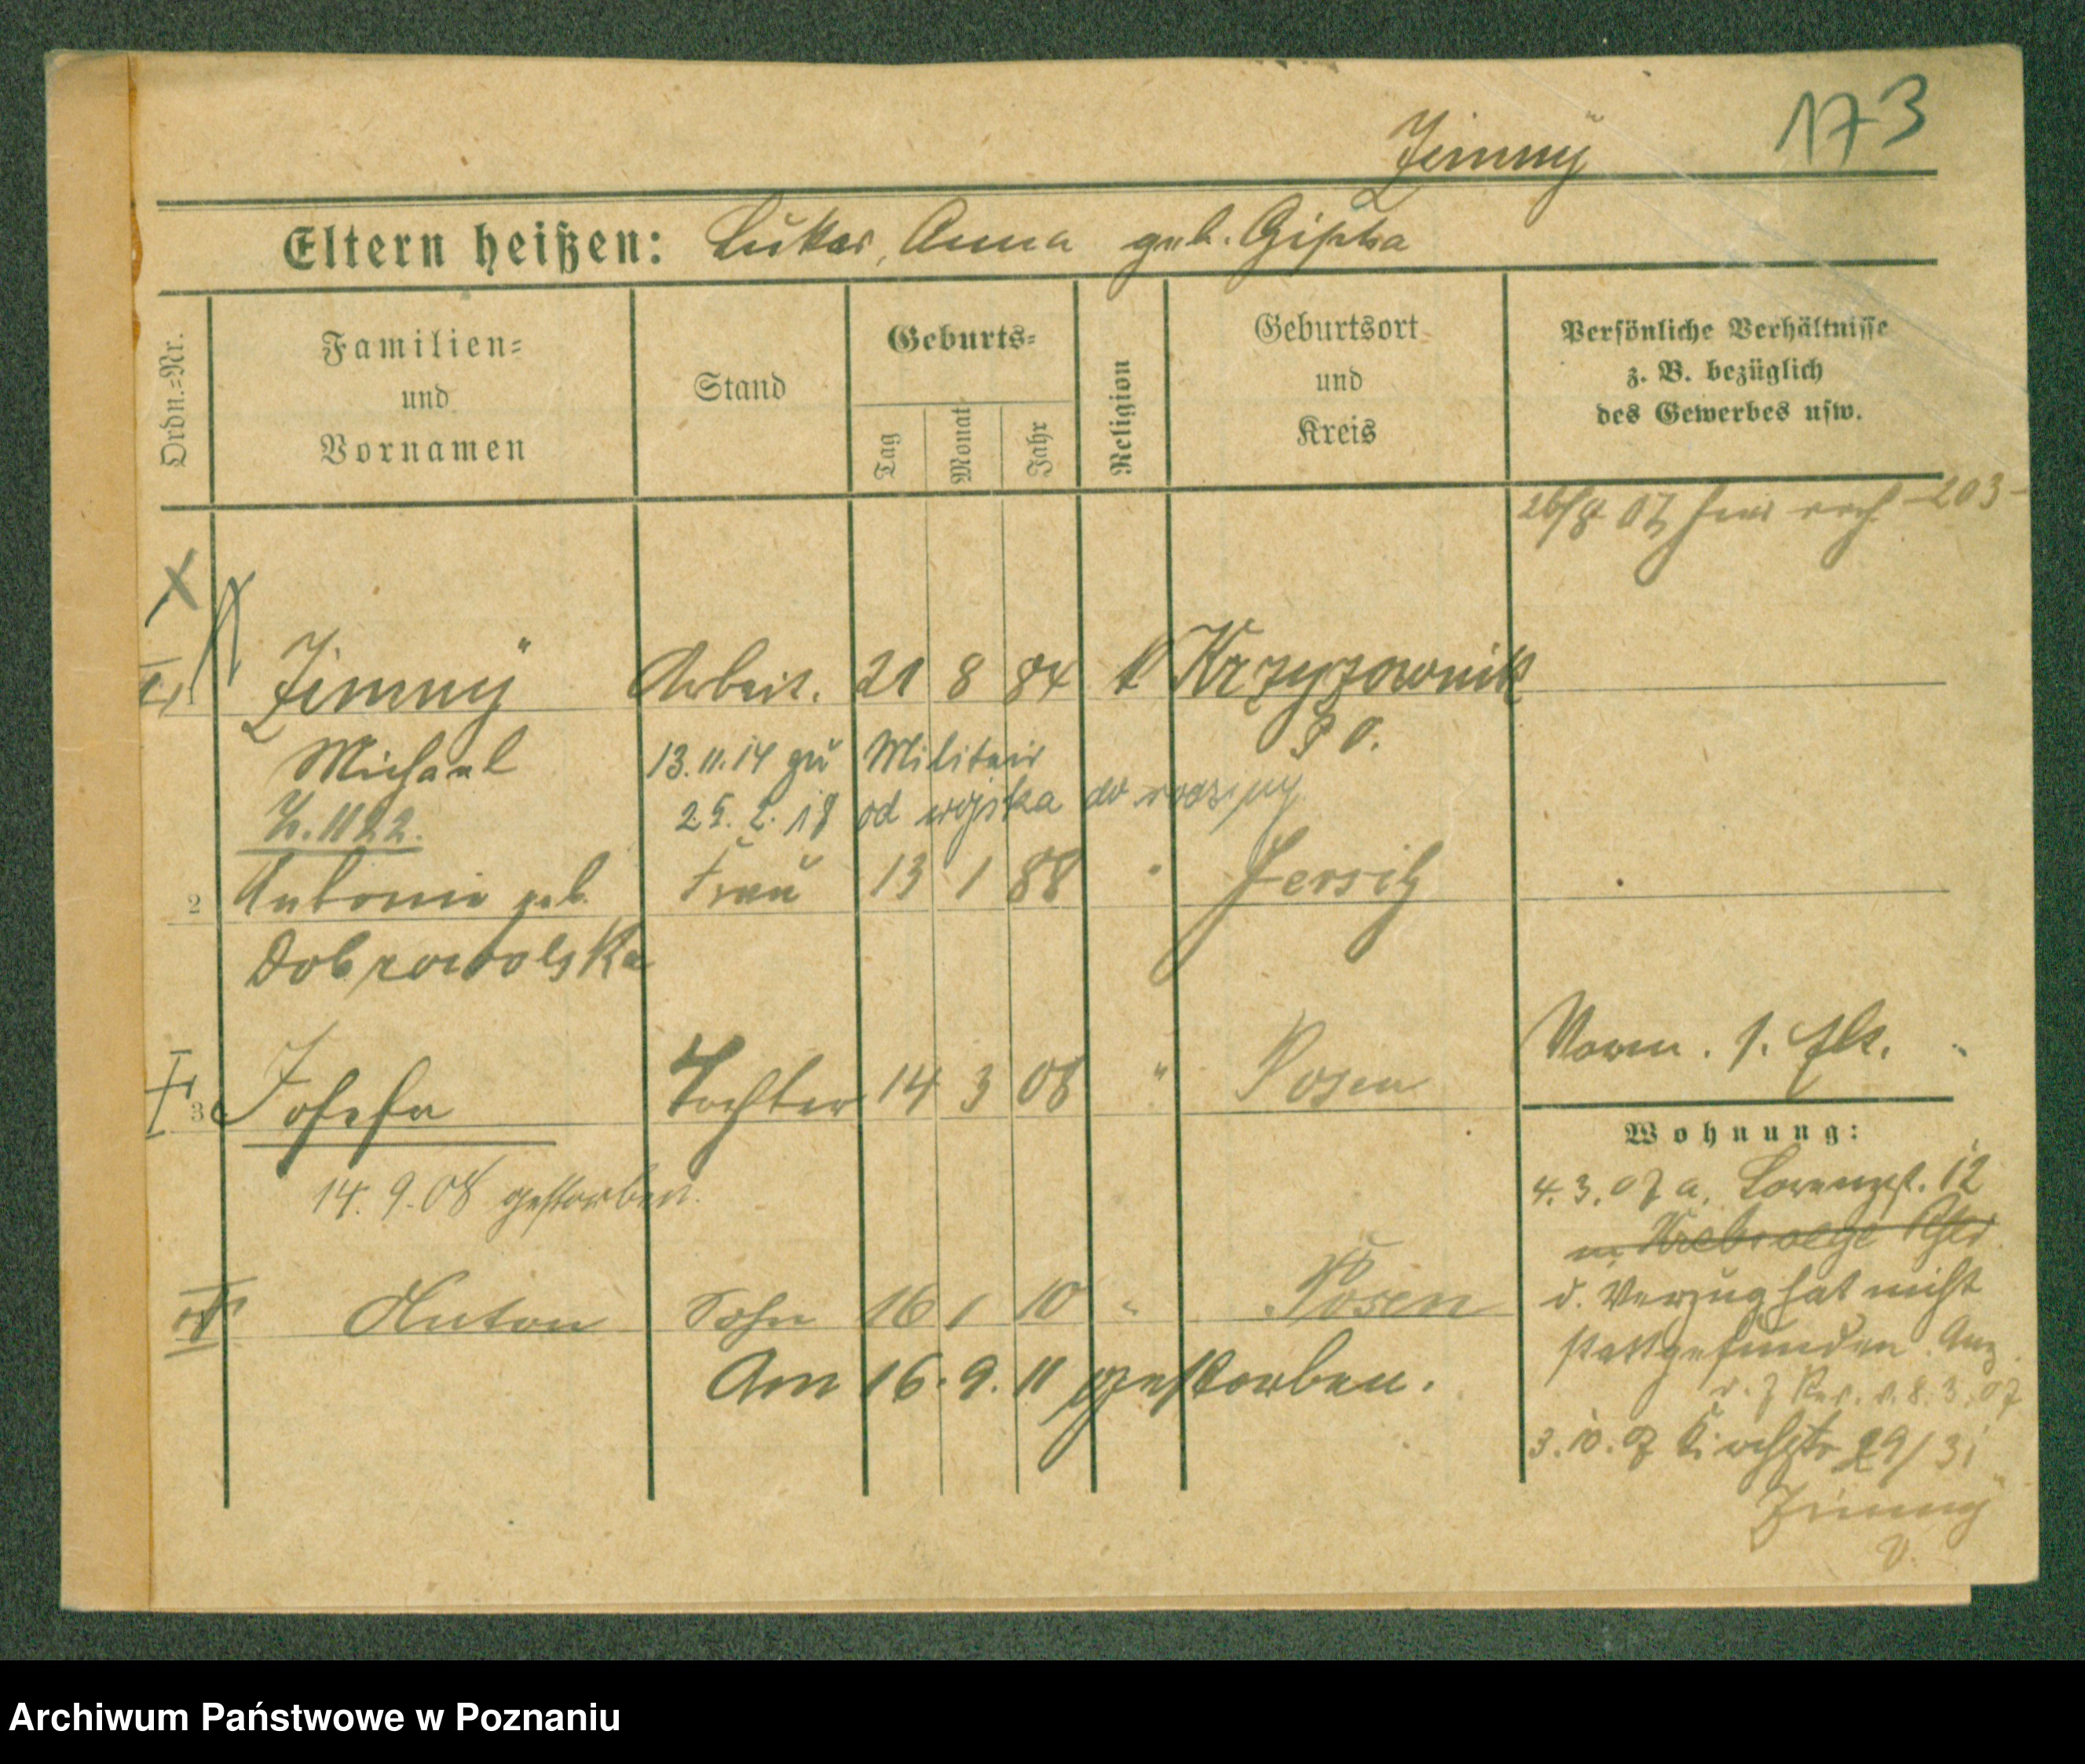 173
Zimny
Eltern heißen: Lukas, Anna geb. Gipska
Ordn.=Nr.
Familien=
und
Vornamen
Stand
Geburts=
Tag
Monat
Jahr
Religion
Geburtsort
und
Kreis
Persönliche Verhältnisse
z. B. bezüglich
des Gewerbes usw.
26/8 07 203
X
1 Zimny Arbeit. 21 8 84 k Krzyzownik
Michael 13.11.14 zu Militair P. O.
25. 2. 18 od wojska do rodziny
1122.
2 Antonie geb. Frau 13 1 88 " Jersitz
Dobrowolska
3 Josefa Tochter 14 3 08 " Posen
14. 9. 08 gestorben.
Anton Sohn 16 1 10 " Posen
Am 16. 9. 11 gestorben.
Wohnung:
4. 3. 07 a. Lorenzst. 12
d. Verzug hat nicht
stattgefunden. Anz.
v. 8. 3. 07
3. 10. 07 Kirchstr 29/31
Zimny
Archiwum Państwowe w Poznaniu